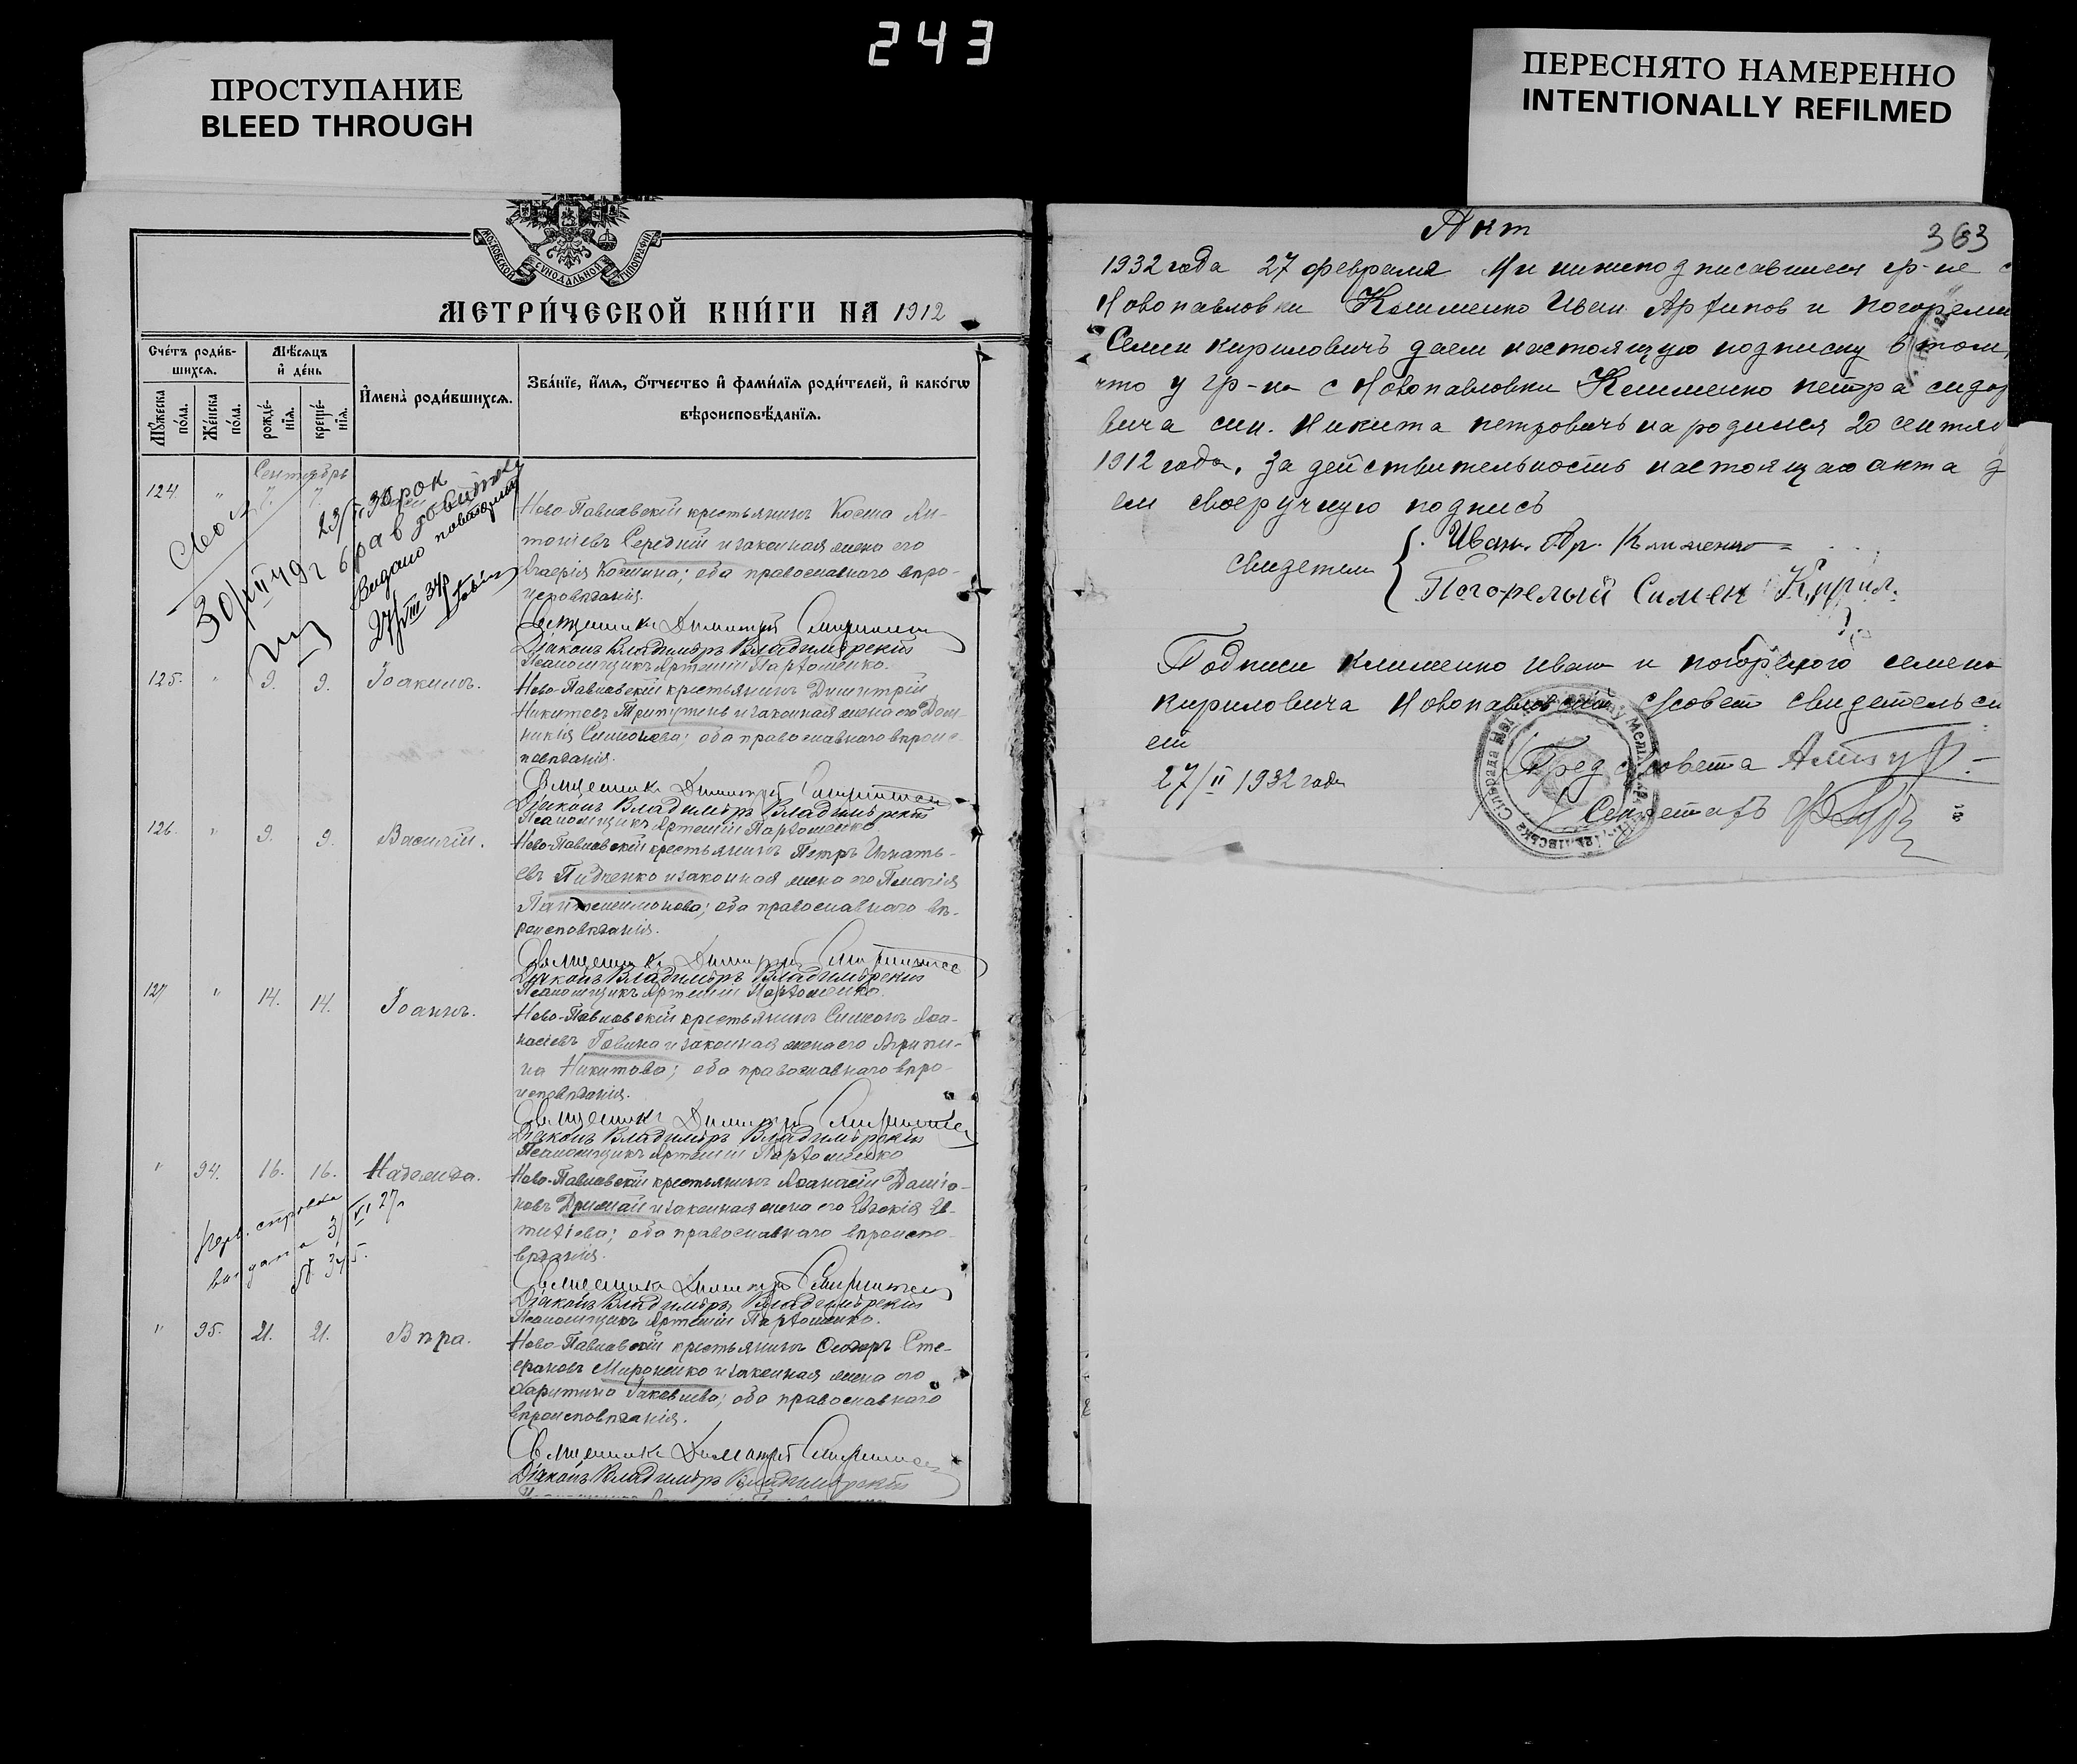 243
ПРОСТУПАНИЕ
BLEED THROUGH
ПЕРЕСНЯТО НАМЕРЕННО
INTENTIONALLY REFILMED
МОСКОВСКОЙ СѴНОДАЛЬНОЙ ТИПОГРАФІИ
МЕТРИ́ЧЕСКОЙ КНИ́ГИ НА 1912
Сче́тъ роди́в-
шихся.
Мѣ́сяцъ
и҆ де́нь
Мꙋ́жеска
по́ла.
Же́нска
по́ла.
рожде́-
нїя.
креще́-
нїя.
И҆мена̀ роди́вшихся.
Зва́нїе, и҆́мѧ, ѻ҆́тчество и҆ фами́лїѧ роди́телей, и҆ како́гѡ
вѣроисповѣ́данїѧ.
Сентябрь
124 " 7. 7.
30/XII 49г
Видано повторно
27/VIII 34р
Ново-Павловскій крестьянинъ Косма Ан-
тоніевъ Середній и законная жена его
Космина; оба православнаго вѣро-
исповѣданія.
Священникъ Димитрій
Діаконъ Владиміръ Владимірскій
Псаломщикъ Артемій Пархоменко.
125. " 9. 9. Іоакимъ.
Ново-Павловскій крестьянинъ Димитрій
Никитовъ Трипутень и законная жена его Дом-
никія Симонова; оба православнаго вѣроис-
повѣданія.
Священникъ Димитрій
Діаконъ Владиміръ Владимірскій
Псаломщикъ Артемій Пархоменко.
126. " 9. 9. Василій.
Ново-Павловскій крестьянинъ Петръ Игнать-
евъ и законная жена его Пелагія
Пантелеимонова; оба православнаго вѣ-
роисповѣданія.
Священникъ Димитрій
Діаконъ Владиміръ Владимірскій
Псаломщикъ Артемій Пархоменко.
127 " 14. 14. Іоаннъ.
Ново-Павловскій крестьянинъ Симеонъ Аѳа-
насіевъ Говина и законная жена его Агрипи-
на Никитова; оба православнаго вѣро-
исповѣданія.
Священникъ Димитрій
Діаконъ Владиміръ Владимірскій
Псаломщикъ Артемій Пархоменко
" 94. 16. 16. Надежда.
справка
выдана 3/VI 27г
№ 345.
Ново-Павловскій крестьянинъ Аѳанасій Даміа-
новъ Дримай и законная жена его Евдокія Ев-
тихіева; оба православнаго вѣроиспо-
вѣданія.
Священникъ Димитрій
Діаконъ Владиміръ Владимірскій
Псаломщикъ Артемій Пархоменко.
" 95. 21. 21. Вѣра.
Ново-Павловскій крестьянинъ Ѳеодоръ Сте-
фановъ Мироненко и законная жена его
Харитина Іаковлева; оба православнаго
вѣроисповѣданія.
Священникъ Димитрій
Діаконъ Владиміръ Владимірскій
363
Акт
1932 года 27 февраля Ми нижеподписавшиеся гр-не с
Новопавловки Клименко Иван Архипов и погорелий
Семен кирилович даем настоящую подписку в том,
что у гр-на с Новопавловки Клименко петра сидор
вича син. Никита петрович народился 20 сентяб
1912 года. За действительность настоящаго акта д
ем своеручную подпись
Свидетели
Иван. Ар. Клименко
Погорелый Симен Кирил.
Подписи клименко иван и погорелого семена
кириловича Новопавловский с/совет свидетельст
ет
27/II 1932 года
Пред с/совета
Секретарь